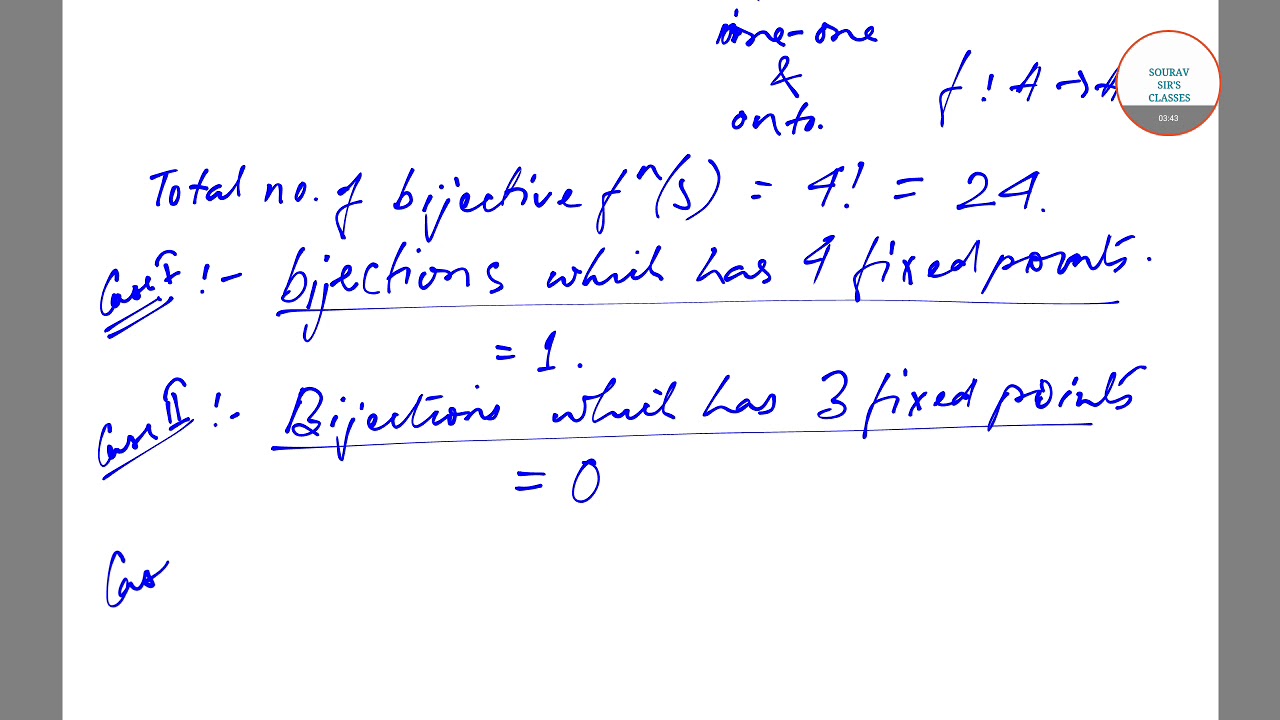 one-one
&
onto.
f : A → A
SOURAV
SIR'S
CLASSES
03:43
Total no. of bijective fⁿ(s) = 4! = 24.
Case I :- bijections which has 4 fixed points.
= 1.
Case II :- Bijections which has 3 fixed points
= 0
Cas